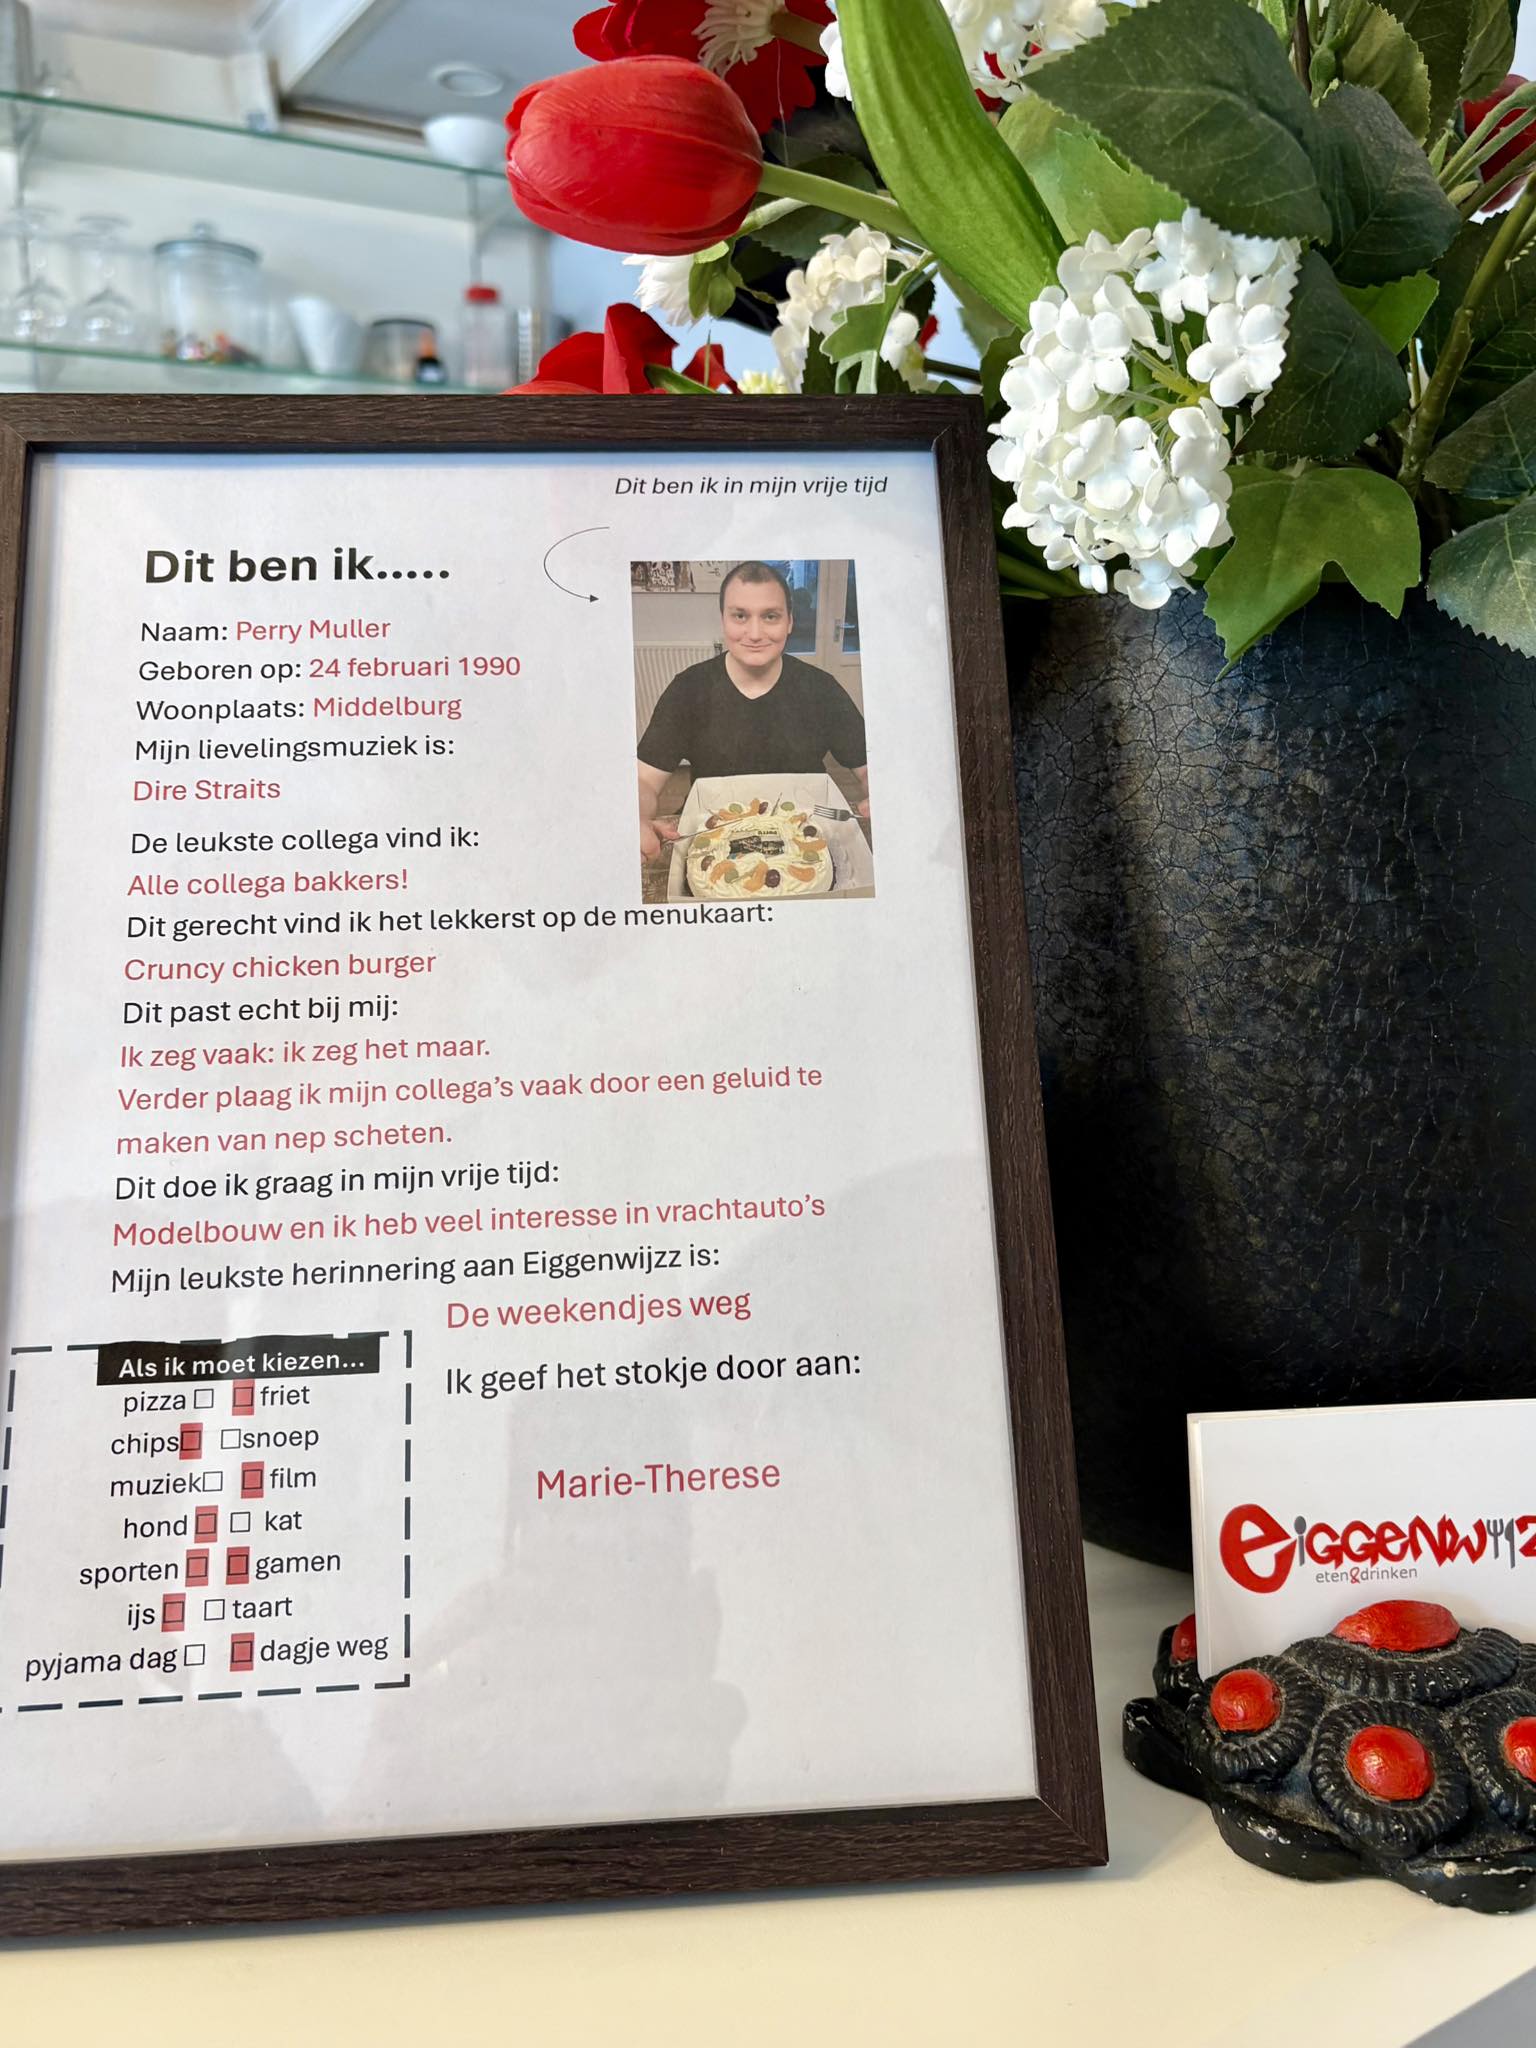 Dit ben ik in mijn vrije tijd
Dit ben ik.....
Naam: Perry Muller
Geboren op: 24 februari 1990
Woonplaats: Middelburg
Mijn lievelingsmuziek is:
Dire Straits
De leukste collega vind ik:
Alle collega bakkers!
Dit gerecht vind ik het lekkerst op de menukaart:
Cruncy chicken burger
Dit past echt bij mij:
Ik zeg vaak: ik zeg het maar.
Verder plaag ik mijn collega's vaak door een geluid te
maken van nep scheten.
Dit doe ik graag in mijn vrije tijd:
Modelbouw en ik heb veel interesse in vrachtauto's
Mijn leukste herinnering aan Eiggenwijzz is:
De weekendjes weg
Ik geef het stokje door aan:
Marie-Therese
Als ik moet kiezen...
pizza □ □ friet
chips□ □snoep
muziek□ □ film
hond □ □ kat
sporten □ □ gamen
ijs □ □ taart
pyjama dag □ □ dagje weg
eiGGenwijz
eten&drinken